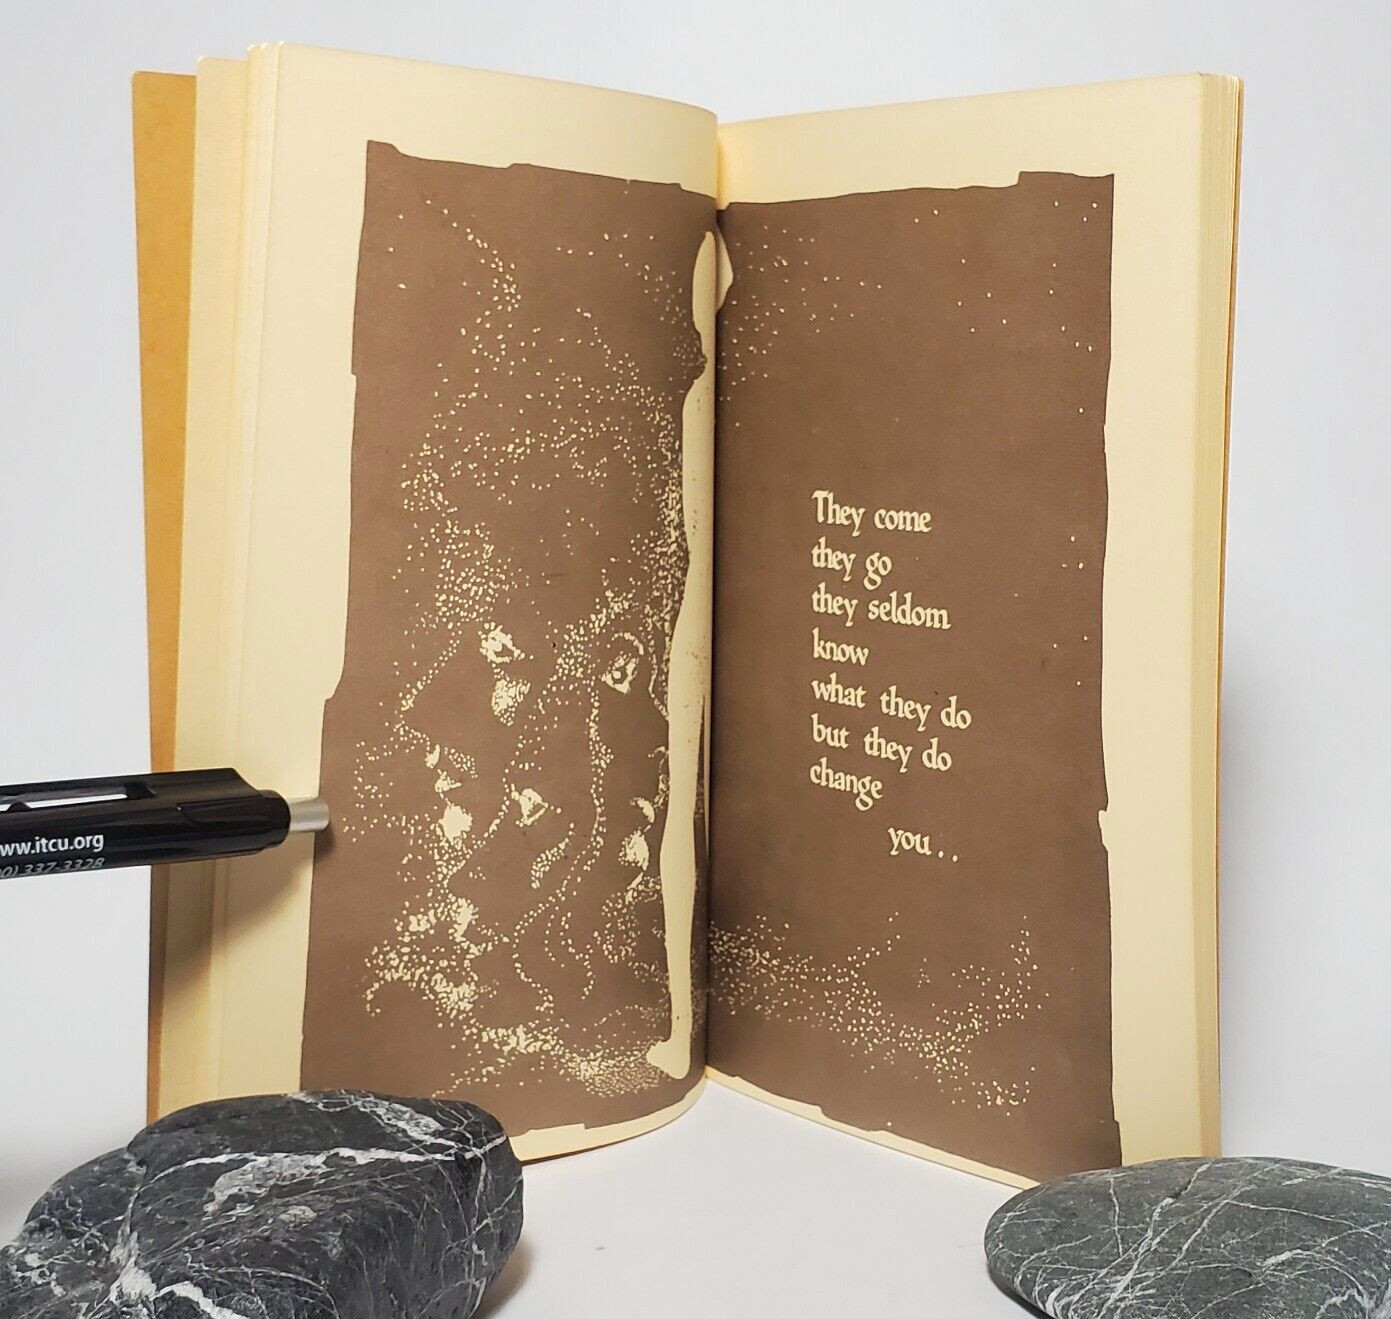 They come
they go
they seldom
know
what they do
but they do
change
you..
ww.itcu.org
00) 337-3328